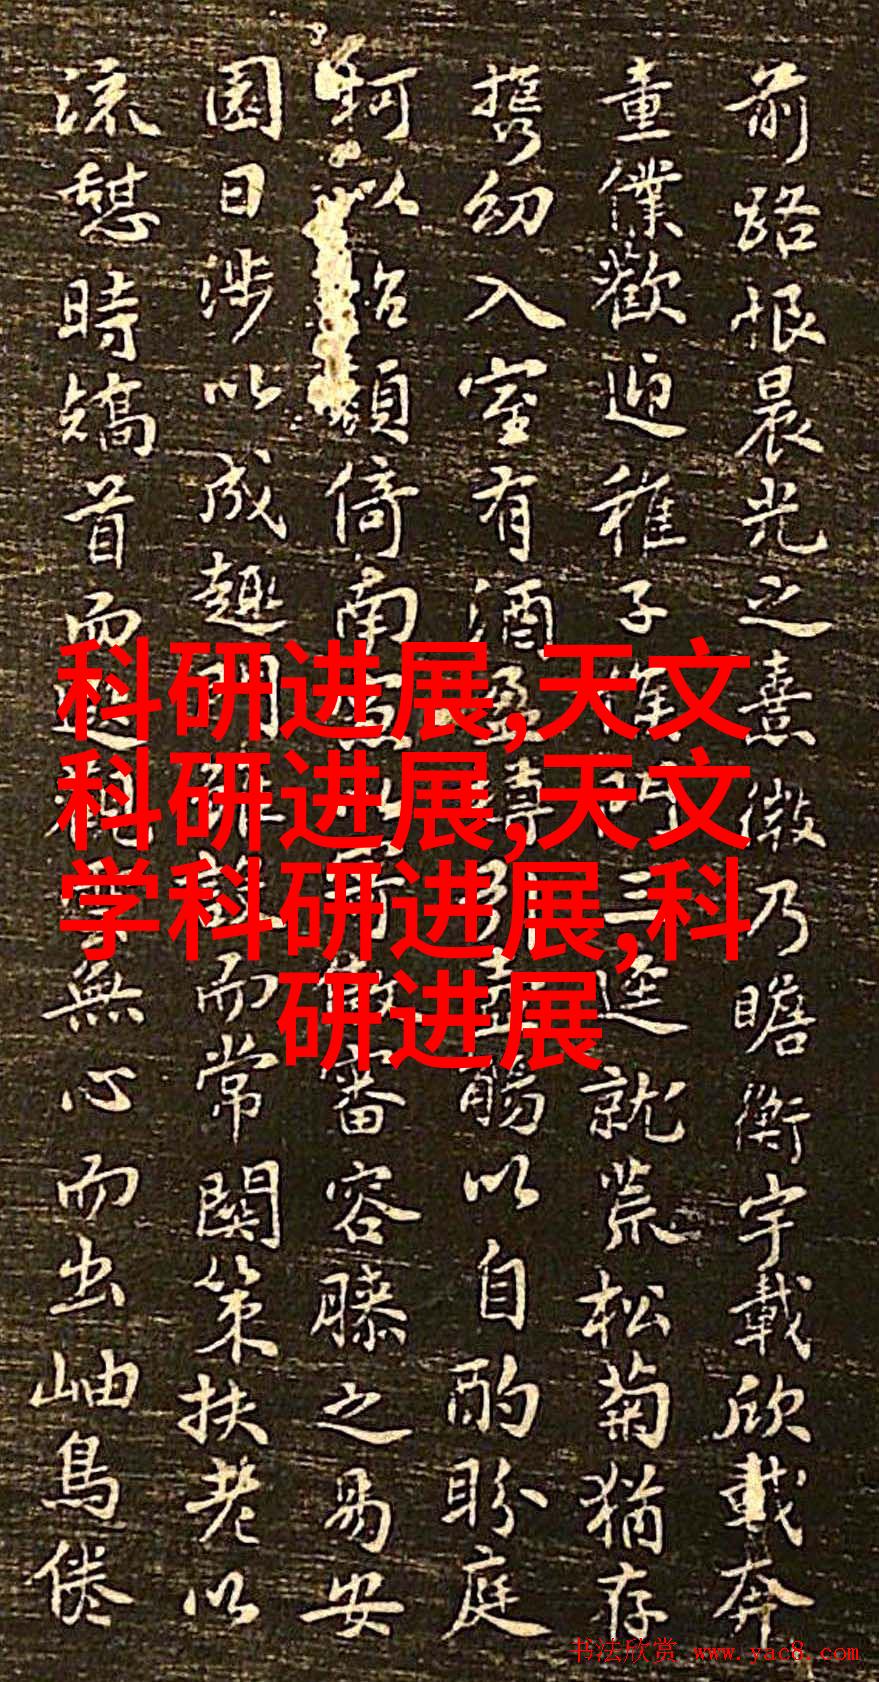 前路恨晨光之熹微乃瞻衡宇載欣載奔
童僕歡迎稚子候門三逕就荒松菊猶存
攜幼入室有酒盈樽引壺觴以自酌盼庭
柯以怡顏倚南窗以寄傲審容膝之易安
園日涉以成趣門雖設而常關策扶老以
流憩時矯首而遐觀雲無心而出岫鳥倦
科研进展,天文
科研进展,天文
学科研进展,科
研进展
书法欣赏 www.yac8.com